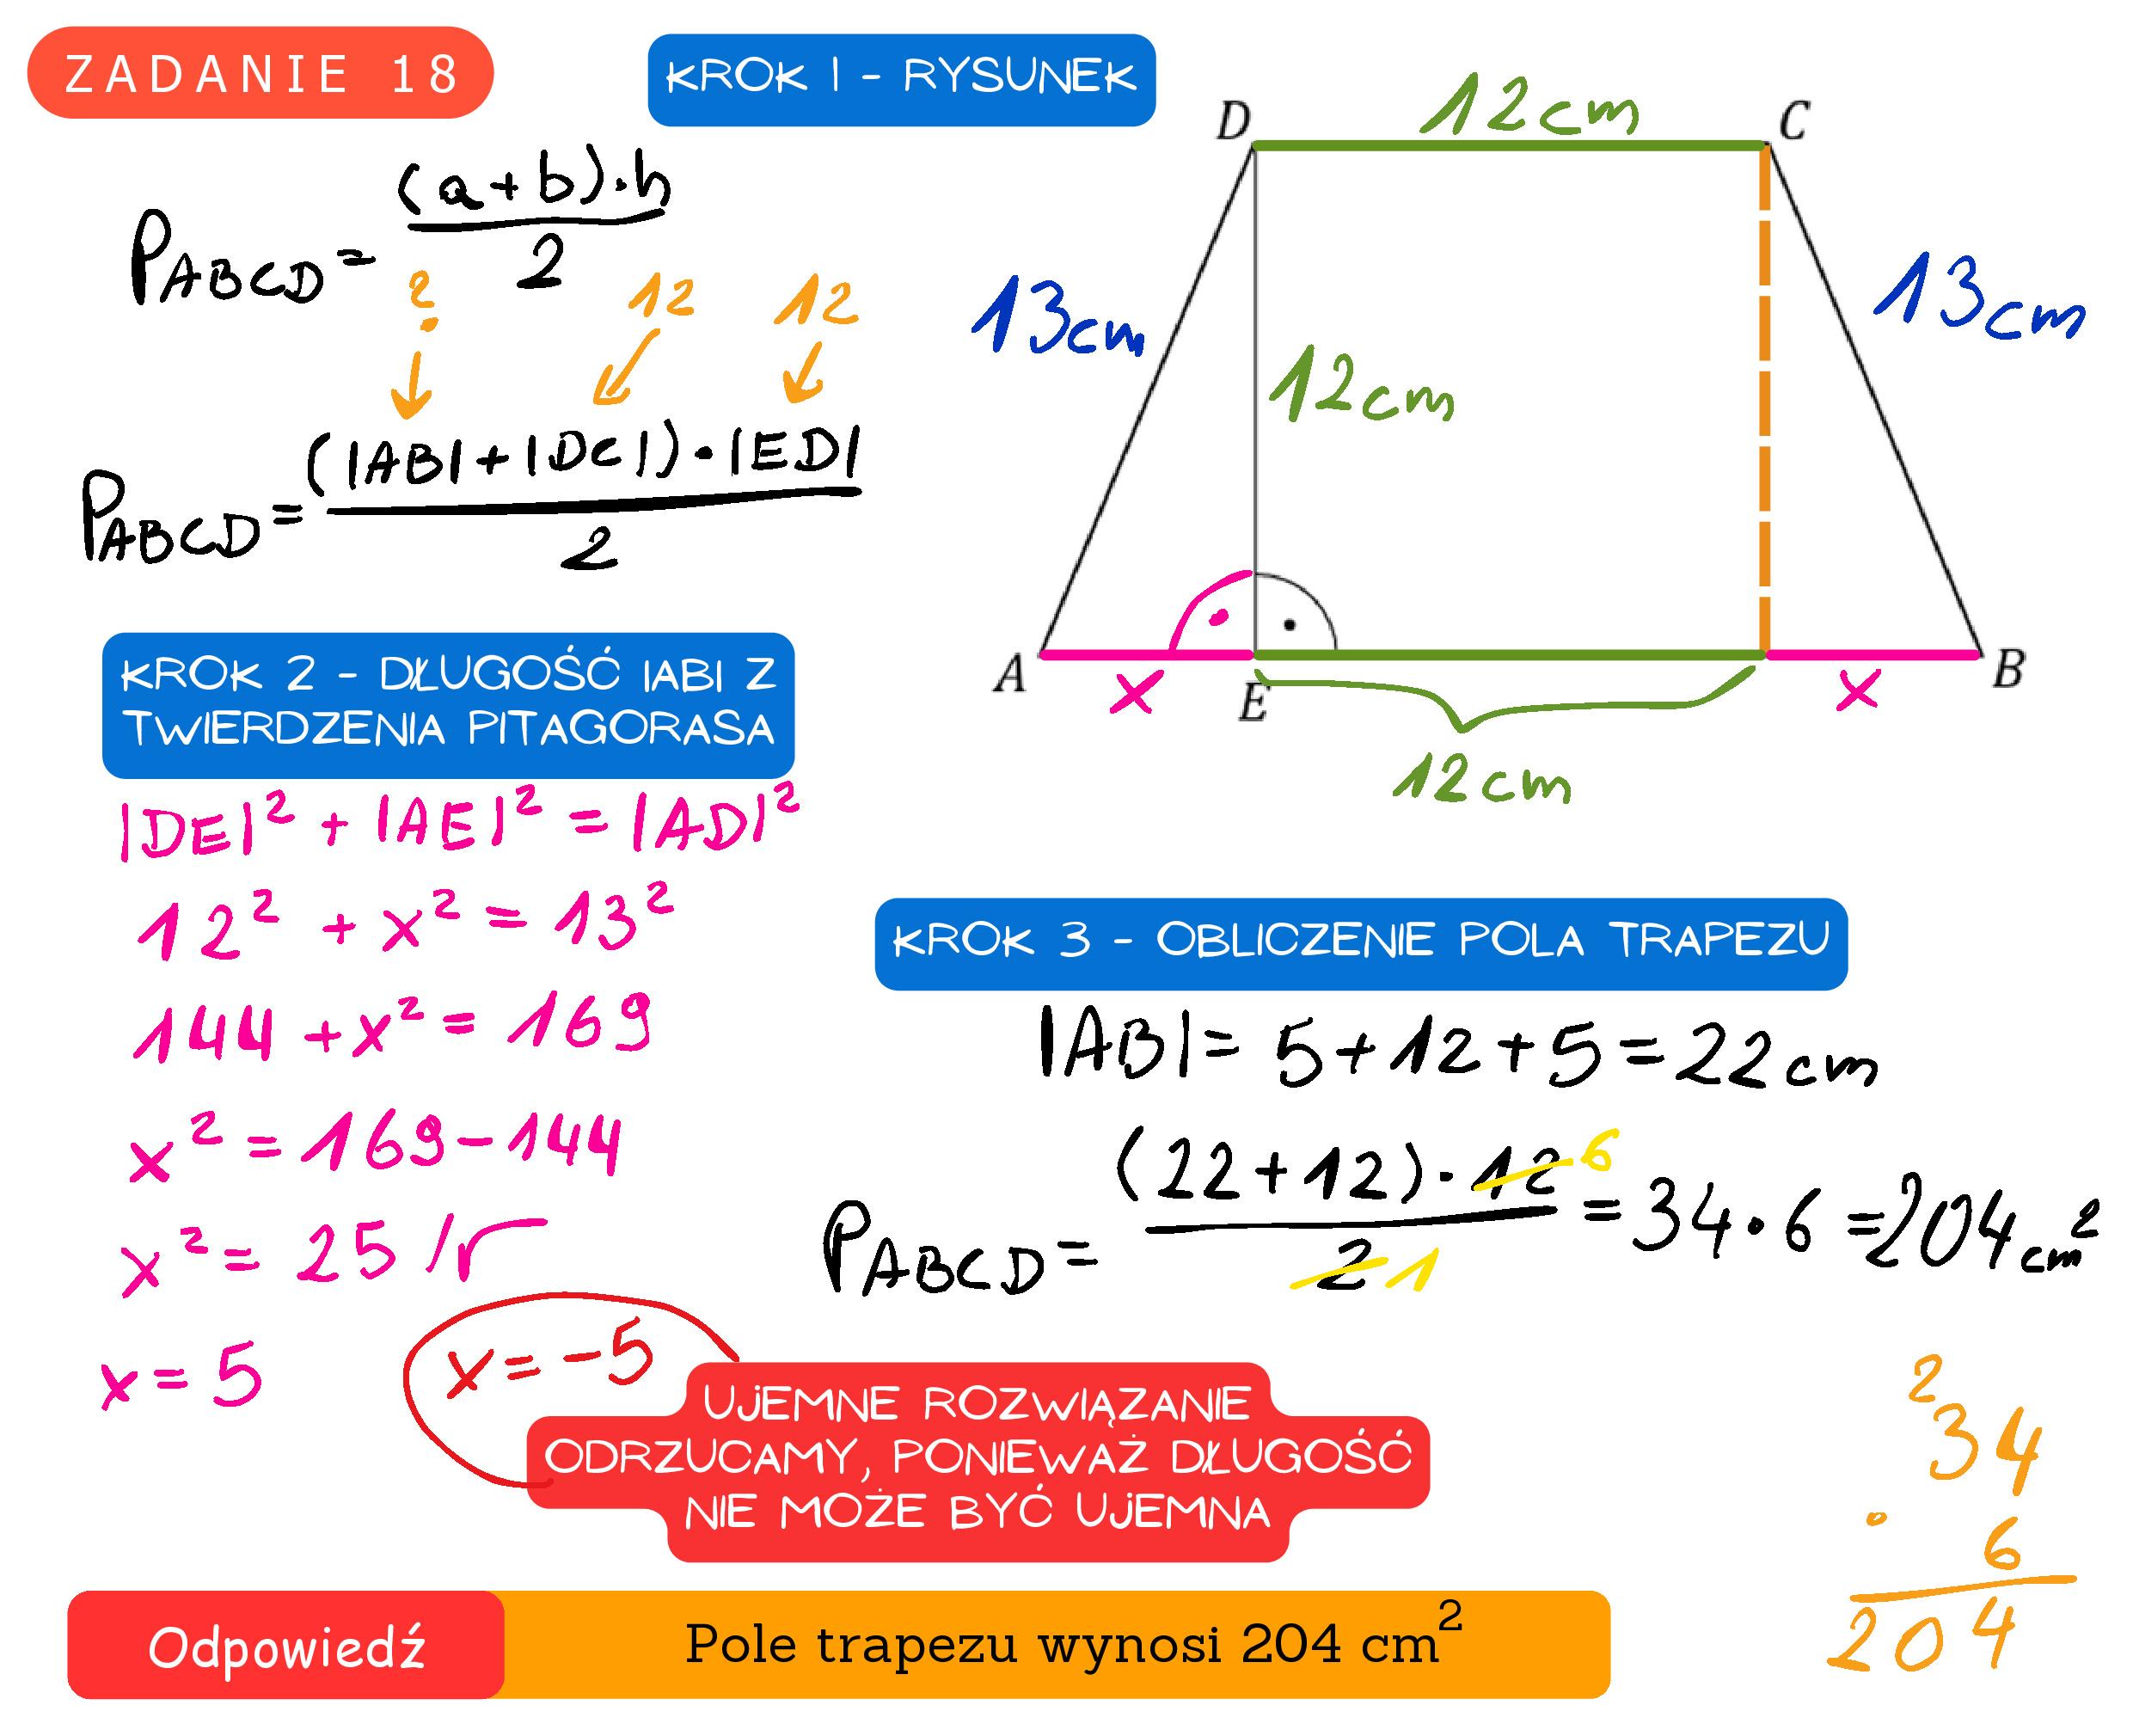 ZADANIE 18
KROK 1 - RYSUNEK
P_ABCD = (a+b)·h / 2
? 12 12
P_ABCD = (|AB|+|DC|)·|ED| / 2
D 12cm C
13cm 12cm 13cm
A x E x B
12cm
KROK 2 - DŁUGOŚĆ |AB| Z
TWIERDZENIA PITAGORASA
|DE|² + |AE|² = |AD|²
12² + x² = 13²
144 + x² = 169
x² = 169 - 144
x² = 25 /√
x = 5 x = -5
UJEMNE ROZWIĄZANIE
ODRZUCAMY, PONIEWAŻ DŁUGOŚĆ
NIE MOŻE BYĆ UJEMNA
KROK 3 - OBLICZENIE POLA TRAPEZU
|AB| = 5+12+5 = 22 cm
P_ABCD = (22+12)·12 6 / 2 1 = 34·6 = 204 cm²
2
34
· 6
204
Odpowiedź Pole trapezu wynosi 204 cm²